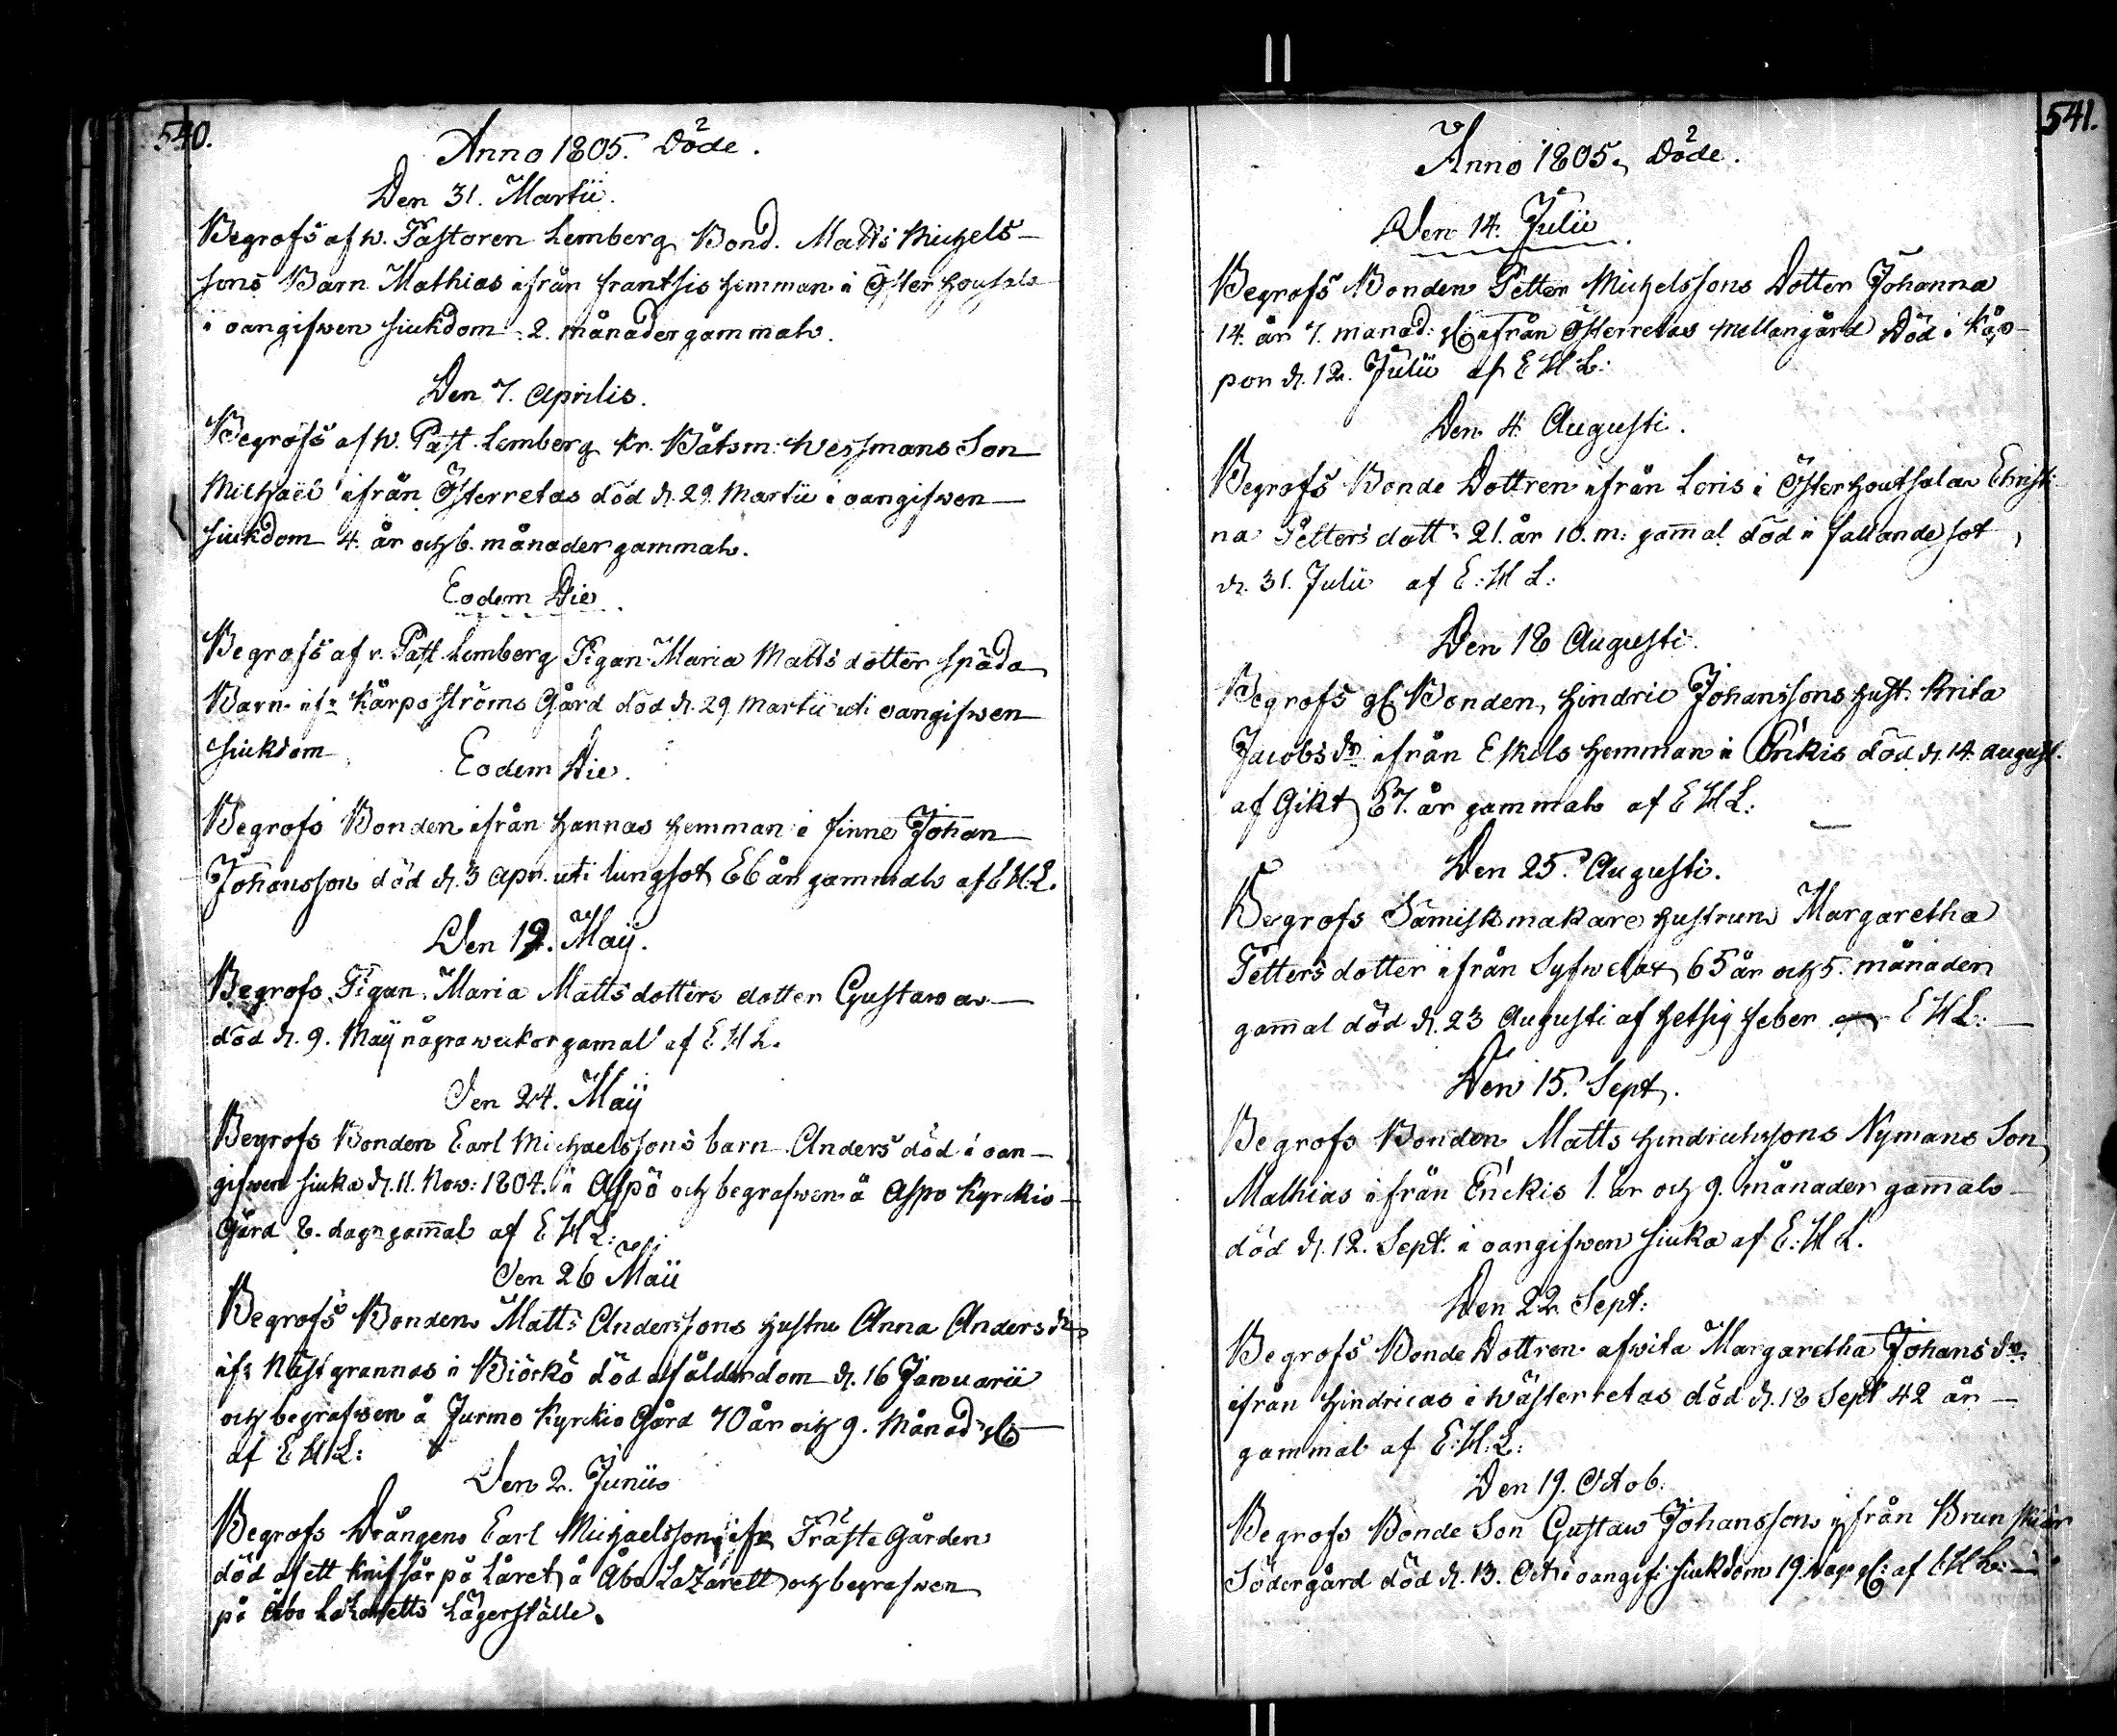 540.
Anno 1805. Döde.
Den 31. Martii.
Begrofs af w. Pastoren Lemberg Bond. Matts Michels-
sons Barn Mathias ifrån frantsis hemman i Österhoutsala
i oangifwen siukdom 2. månader gammal.
Den 7. Aprilis.
Begrofs af w. Past. Lemberg Kr. Båtsm: Wessmans Son
Michaël ifrån Österretas död d. 29. Martii i oangifwen
siukdom 4. år och 6. månader gammal.
Eodem Die
Begrofs af v. Past. Lemberg Pigan Maria Matts dotter späda
Barn ifr Kårpo ströms Gård död d. 29 Martii uti oangifwen
siukdom
Eodem Die.
Begrofs Bonden ifrån Hannas hemman i finno Johan
Johansson död d. 3 Apr. uti lungsot 66 år gammal af E H. L.
Den 12. Maij.
Begrofs Pigan Maria Mattsdotters dotter Gustawa
död d. 9. Maij några weckor gamal af E H L.
Den 24. Maij
Begrofs Bonden Carl Michaelssons barn Anders död i oan-
gifwen siuka d. 11. Now: 1804. i Aspö och begrafwen å Aspo Kyrckio-
Gård 8. dagr gam̄al af E H L:
Den 26 Maii
Begrofs Bonden Matts Anderssons hustru Anna Andersdr
ifr Nästgrannas i Biörkö död af ålderdom d. 16 Januarii
och begrafwen å Jurmo Kyrckio Gård 70 år och 9. Månad gl
af E H L:
Den 2. Junii
Begrofs Drängen Carl Michaelsson ifr Präste Gården
död af ett Knif sår på Låret å Åbo Lazarett och begrafwen
på Åbo Lazaretts Lägerställe.
541.
Anno 1805. Döde.
Den 14. Julii
Begrofs Bonden Petter Michelssons Dotter Johanna
14. år 7. manad: gl ifrån Österretas Mellangård Död i Kåp-
pon d. 12. Julii af E H L:
Den 4. Augusti.
Begrofs Bonde Dottren ifrån Loris i Österhoutsala Christi
na Petters dott: 21. år 10. m: gam̄al död i fallande sot
d. 31. Julii af E: H L:
Den 18 Augusti.
Begrofs gl. Bonden, Hindric Johanssons hust. Brita
Jacobs dr ifrån Eskils hemman i död d. 14. august.
af Gikt 67. år gammal af E H L:
Den 25. Augusti.
Begrofs Sämiskmakare hustrun Margaretha
Petters dotter ifrån Syfwelax 65 år och 5. månader
gam̄al död d. 23 Augusti af hetsig feber E H L:
Den 15. Sept.
Begrofs Bonden Matts Hindrichssons Nymans Son
Mathias ifrån Enckis 1. år och 9. månader gam̄al
död d. 12. Sept. i oangifwen siuka af E: H L.
Den 22 Sept:
Begrofs Bonde Dottren afwita Margaretha Johans dr.
ifrån Hindricas i Wästerretas död d. 18 Sept 42 år
gammal af E. H. L:
Den 19. Octob.
Begrofs Bonde Son Gustaw Johansson ifrån Brunskiär
Södergård död d. 13. Oct. i oangif: siukdom 19 dagr gl: af E H L: